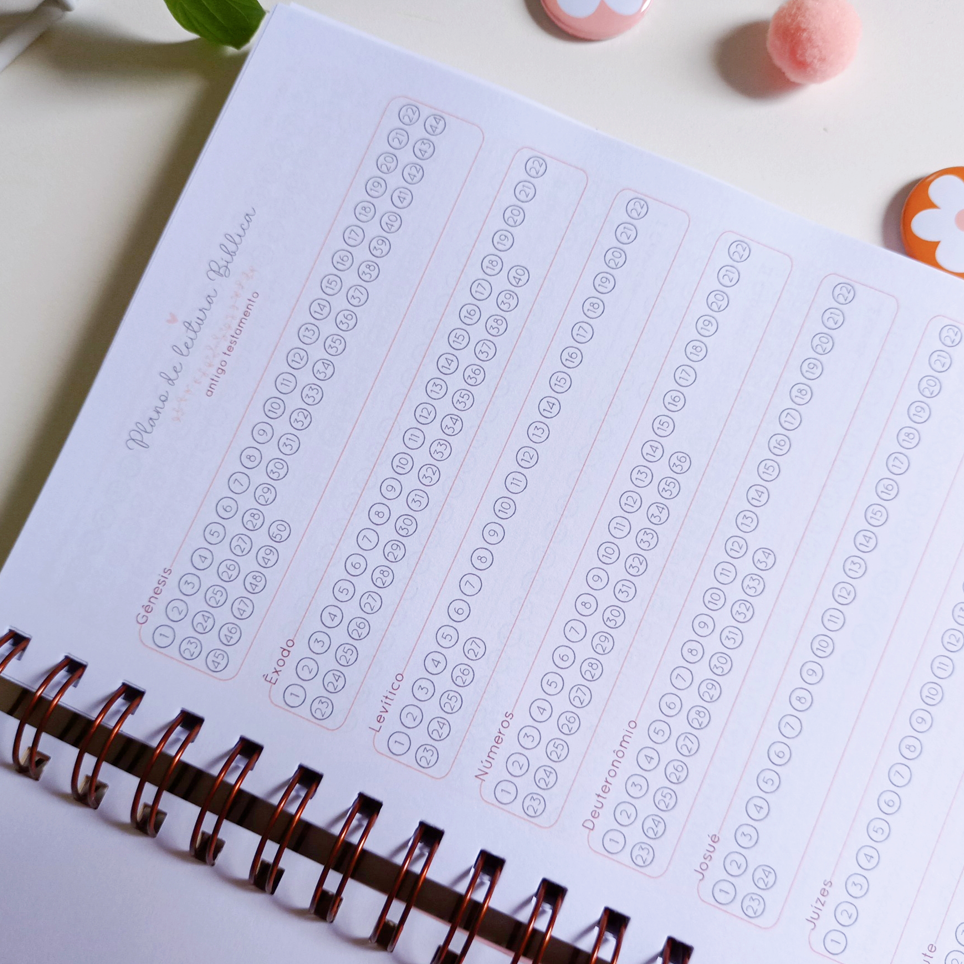 Plano de leitura Bíblica
antigo testamento
Gênesis
1 2 3 4 5 6 7 8 9 10 11 12 13 14 15 16 17 18 19 20 21 22
23 24 25 26 27 28 29 30 31 32 33 34 35 36 37 38 39 40 41 42 43 44
45 46 47 48 49 50
Êxodo
1 2 3 4 5 6 7 8 9 10 11 12 13 14 15 16 17 18 19 20 21 22
23 24 25 26 27 28 29 30 31 32 33 34 35 36 37 38 39 40
Levítico
1 2 3 4 5 6 7 8 9 10 11 12 13 14 15 16 17 18 19 20 21 22
23 24 25 26 27
Números
1 2 3 4 5 6 7 8 9 10 11 12 13 14 15 16 17 18 19 20 21 22
23 24 25 26 27 28 29 30 31 32 33 34 35 36
Deuteronômio
1 2 3 4 5 6 7 8 9 10 11 12 13 14 15 16 17 18 19 20 21 22
23 24 25 26 27 28 29 30 31 32 33 34
Josué
1 2 3 4 5 6 7 8 9 10 11 12 13 14 15 16 17 18 19 20 21 22
23 24
Juízes
1 2 3 4 5 6 7 8 9 10 11 12